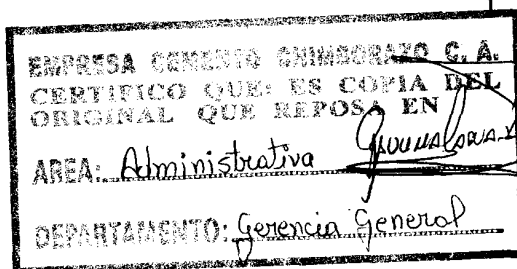 EMPRESA CEMENTO CHIMBORAZO C. A.
CERTIFICO QUE: ES COPIA DEL
ORIGINAL QUE REPOSA EN
AREA: Administrativa
DEPARTAMENTO: Gerencia General